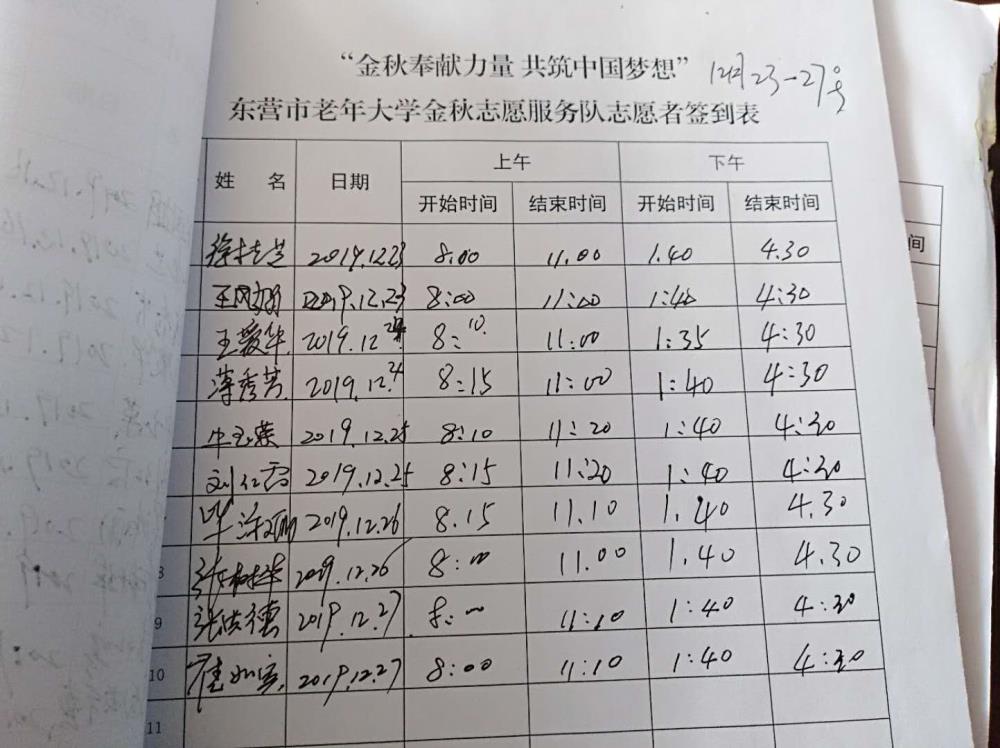 “金秋奉献力量 共筑中国梦想” 12月23-27号
东营市老年大学金秋志愿服务队志愿者签到表
姓 名 日期 上午 下午
开始时间 结束时间 开始时间 结束时间
2019.12.23 8.00 11.00 1.40 4.30
2019.12.23 8:00 11:00 1:40 4:30
王爱华 2019.12.24 8:10 11:00 1:35 4:30
薄秀芳 2019.12.24 8:15 11:00 1:40 4:30
牛玉荣 2019.12.25 8:10 11:20 1:40 4:30
刘仁霞 2019.12.25 8:15 11:20 1:40 4:30
2019.12.26 8.15 11.10 1.40 4.30
8 2019.12.26 8:00 11.00 1.40 4.30
9 张洪德 2019.12.27 8:00 11:10 1:40 4:30
10 2019.12.27 8:00 11:10 1:40 4:30
11
间